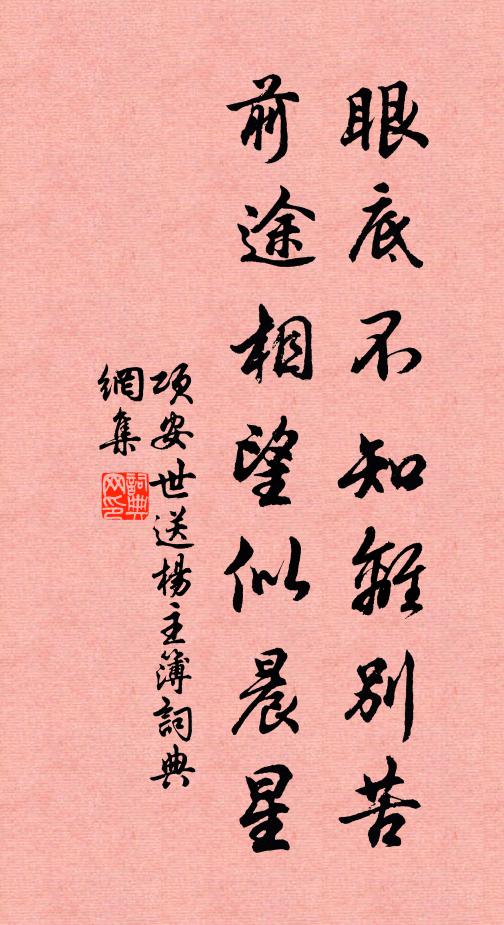 眼底不知離別苦
前途相望似晨星
項安世送楊主簿詞典
網集
詞典
网印